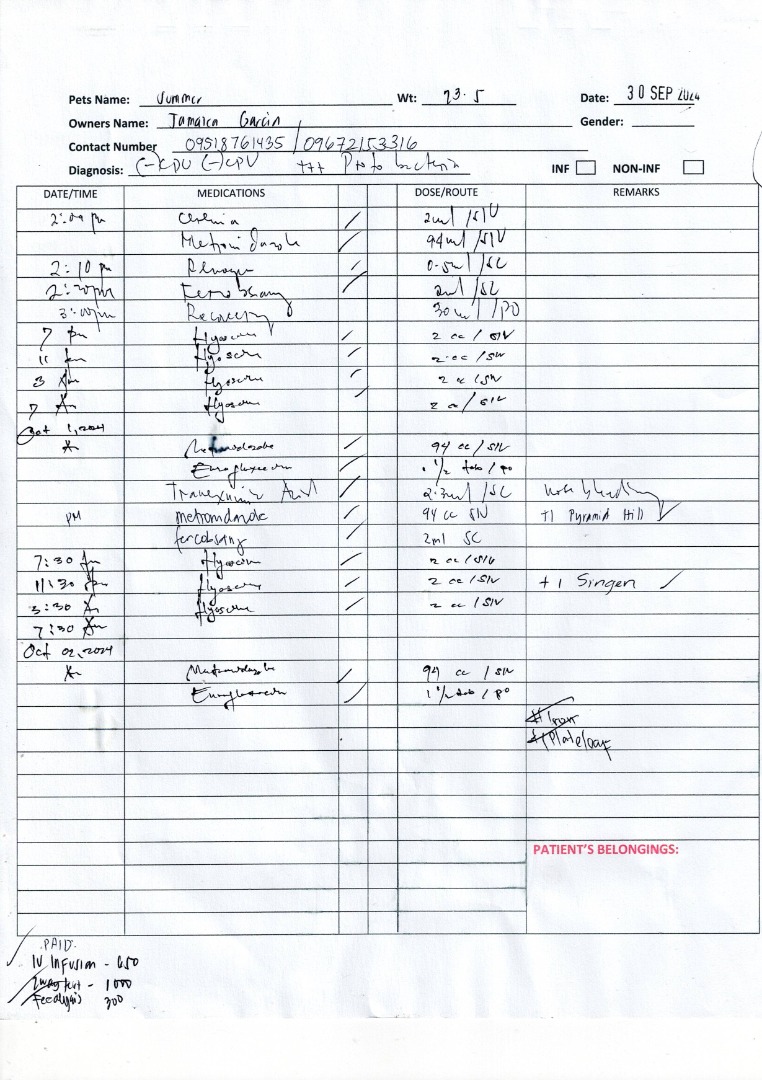 Pets Name: Summer Wt: 23.5 Date: 30 SEP 2024
Owners Name: Jamaica Garcia Gender:
Contact Number 09518761435 / 09672153316
Diagnosis: (-) CDV (-) CPV +++ Proto bacteria INF NON-INF
DATE/TIME MEDICATIONS DOSE/ROUTE REMARKS
2:00 pm Cerenia 2ml /SIV
Metronidazole 94ml /SIV
2:10 pm 0.5ml /SC
2:20pm 2ml /SC
3:00pm Recovery 30ml /PO
7 pm Hyoscine 2 cc / SIV
11 pm Hyoscine 2 cc / SIV
3 Am Hyoscine 2 cc / SIV
7 Am Hyoscine 2 cc / SIV
Oct 1, 2024
Am Metronidazole 94 cc / SIV
1 1/2 tab / PO
Tranexamic Acid 2.3ml /SC nose bleeding
PM metronidazole 94 cc SIV +1 Pyramid Hill
2ml SC
7:30 pm Hyoscine 2 cc / SIV
11:30 pm Hyoscine 2 cc / SIV +1 Singen
3:30 Am Hyoscine 2 cc / SIV
7:30 Am
Oct 02, 2024
Am Metronidazole 94 cc / SIV
1 1/2 tab / PO
PATIENT'S BELONGINGS:
PAID
IV Infusion - 650
2way test - 1000
Fecalysis 300